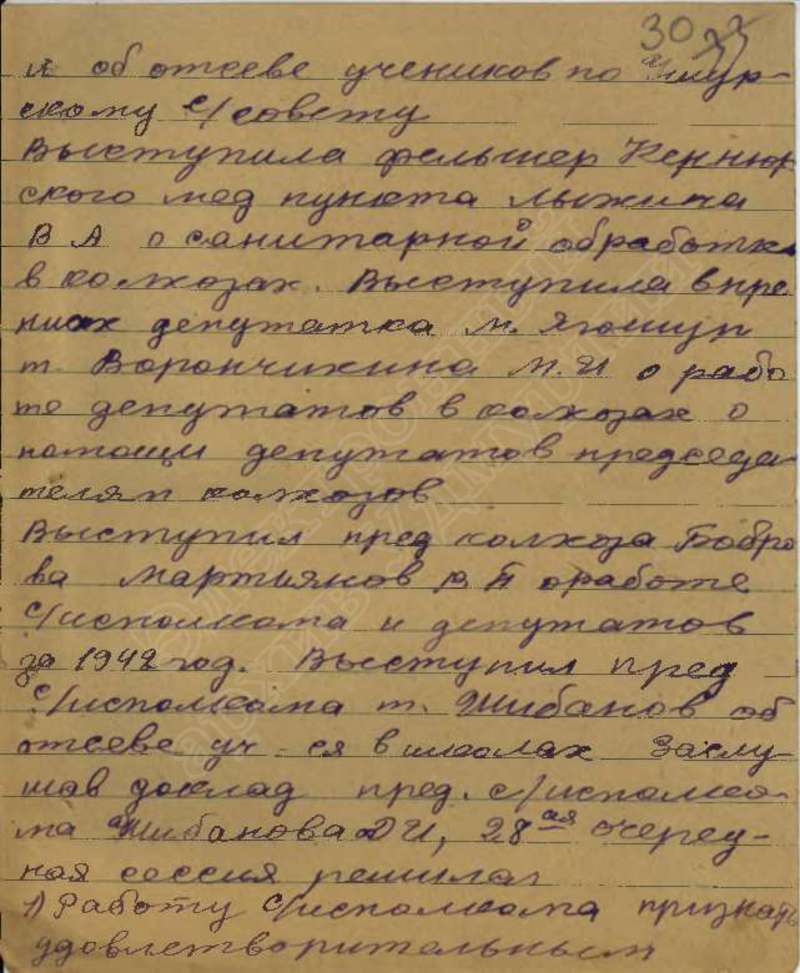 30
и об отсеве учеников по
скому с/совету
Выступила фельшер
ского мед пункта Лыжина
В А о санитарной обработке
в колхозах. Выступила в пре
ниах депутатка м. Ягошур
т. Ворончихина М.И о рабо
те депутатов в колхозах о
помощи депутатов председа-
телям колхозов
Выступил пред колхоза Бобро
ва Мартьянов В П о работе
с/исполкома и депутатов
за 1942 год. Выступил пред
с/исполкома т. Шибанов об
отсеве уч-ся в школах Заслу-
шав доклад пред. с/исполко-
ма Шибанова Д И, 28ая очеред-
ная сессия решила
1) Работу с/исполкома признать
удовлетворительным